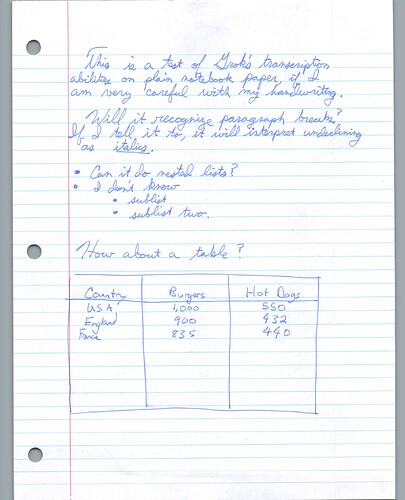 This is a test of Grok's transcription
abilities on plain notebook paper, if I
am very careful with my handwriting.
Will it recognize paragraph breaks?
If I tell it to, it will interpret underlining
as italics.
• Can it do nested lists?
• I don't know
• sublist
• sublist two.
How about a table?
Country Burgers Hot Dogs
USA 1,000 550
England 900 432
France 835 440